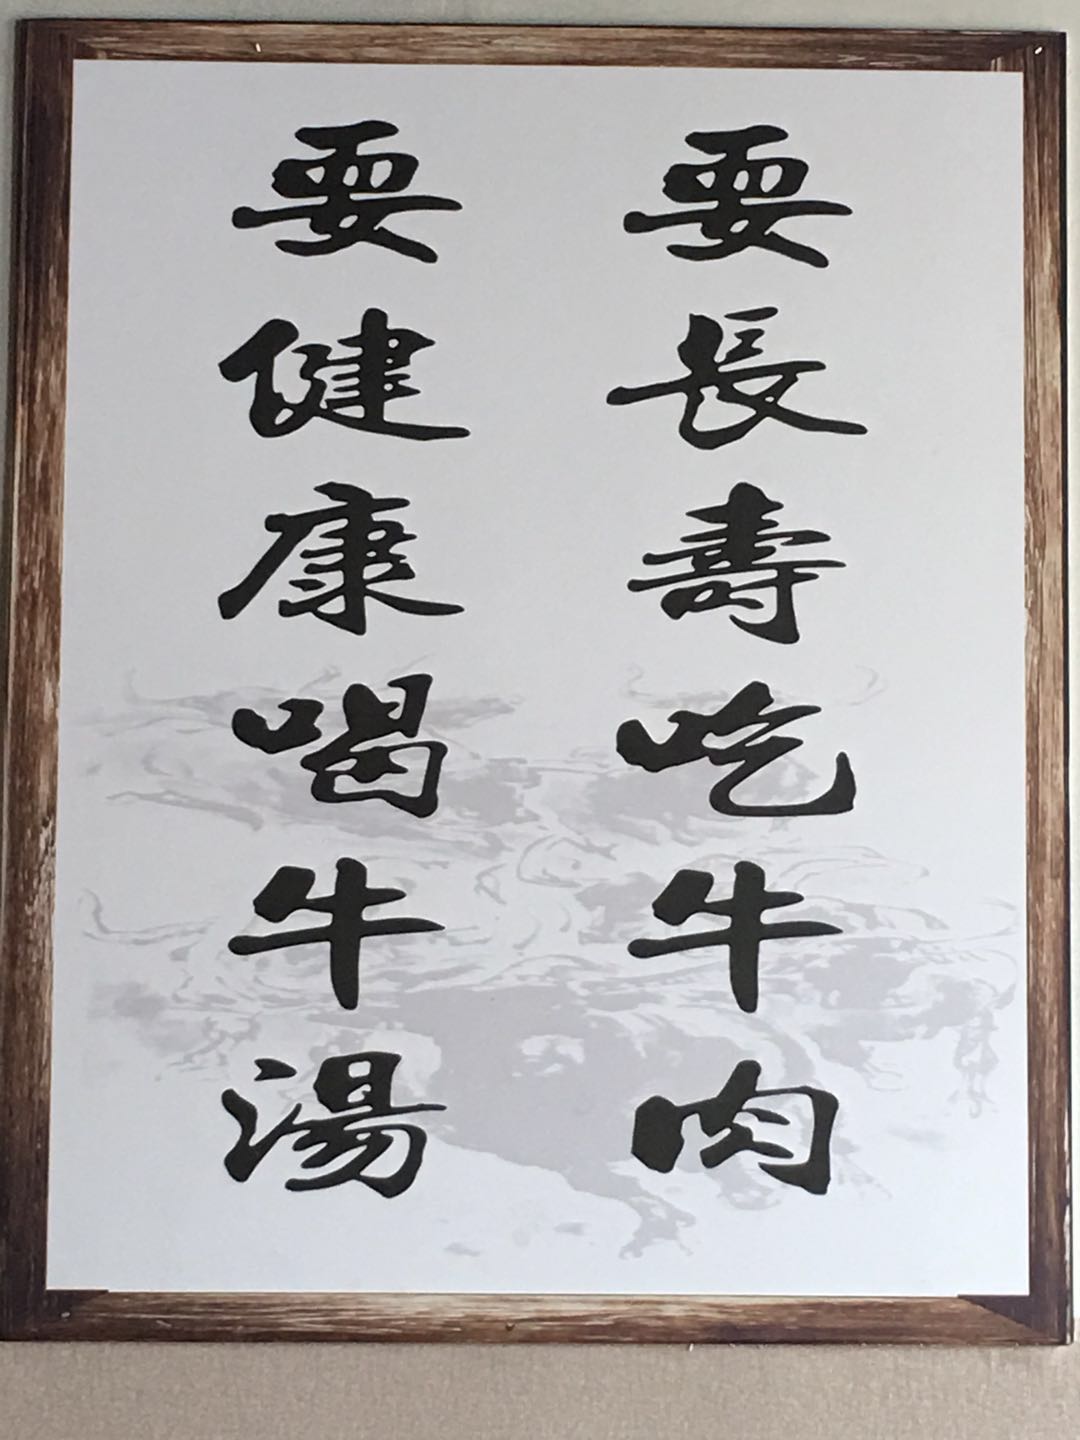 要長壽吃牛肉
要健康喝牛湯